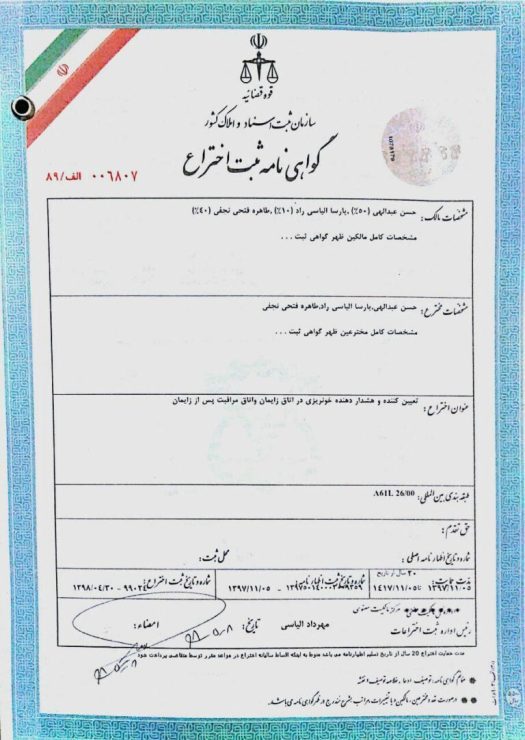 قوه قضائیه
سازمان ثبت اسناد و املاک کشور
گواهی نامه ثبت اختراع
۰۰۶۸۰۷ الف/۸۹
مشخصات مالک: حسن عبدالهی (۵۰٪) ,پارسا الیاسی راد (۱۰٪) ,طاهره فتحی نجفی (۴۰٪)
مشخصات کامل مالکین ظهر گواهی ثبت ...
مشخصات مخترع: حسن عبدالهی,پارسا الیاسی راد,طاهره فتحی نجفی
مشخصات کامل مخترعین ظهر گواهی ثبت ...
عنوان اختراع: تعیین کننده و هشدار دهنده خونریزی در اتاق زایمان واتاق مراقبت پس از زایمان
طبقه بندی بین المللی: A61L 26/00
حق تقدم:
شماره و تاریخ اظهار نامه اصلی: محل ثبت:
مدت حمایت: ۲۰ سال از تاریخ ۱۳۹۷/۱۱/۰۵ تا ۱۴۱۷/۱۱/۰۵
شماره و تاریخ ثبت اظهار نامه: ۱۳۹۷/۱۱/۰۵
شماره و تاریخ ثبت اختراع: ۱۳۹۸/۰۴/۳۰
مرکز مالکیت معنوی
رئیس اداره ثبت اختراعات مهرداد الیاسی تاریخ: امضاء:
مدت حمایت اختراع 20 سال از تاریخ تسلیم اظهارنامه می باشد منوط به اینکه اقساط سالیانه اختراع در مواعد مقرر توسط متقاضی پرداخت شود
ضمائم گواهی نامه: توصیف، ادعا، خلاصه توصیف و نقشه
در صورت تعدد مخترعین، مالکین و یا تغییرات، مراتب بشرح مندرج در ظهر گواهی نامه می باشد.